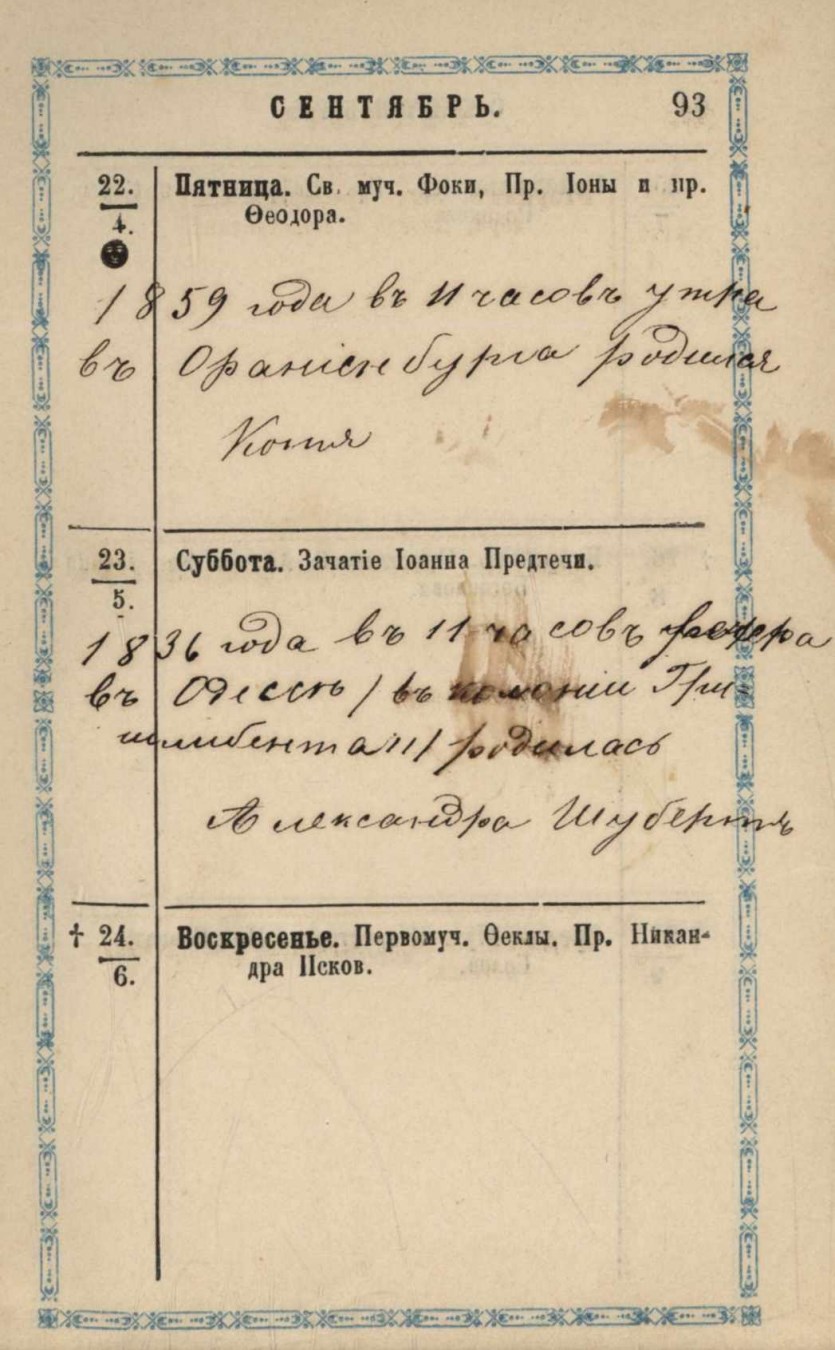 СЕНТЯБРЬ. 93
22. Пятница. Св. муч. Фоки, Пр. Іоны и пр.
4. Ѳеодора.
1859 года въ 11 часовъ утра
въ Ораніенбурга родился
Костя
23. Суббота. Зачатіе Іоанна Предтечи.
5.
1836 года въ 11 часовъ вечера
въ Одессѣ / въ колоніи
родилась
Александра Шубертъ
† 24. Воскресенье. Первомуч. Ѳеклы. Пр. Никан-
6. дра Псков.